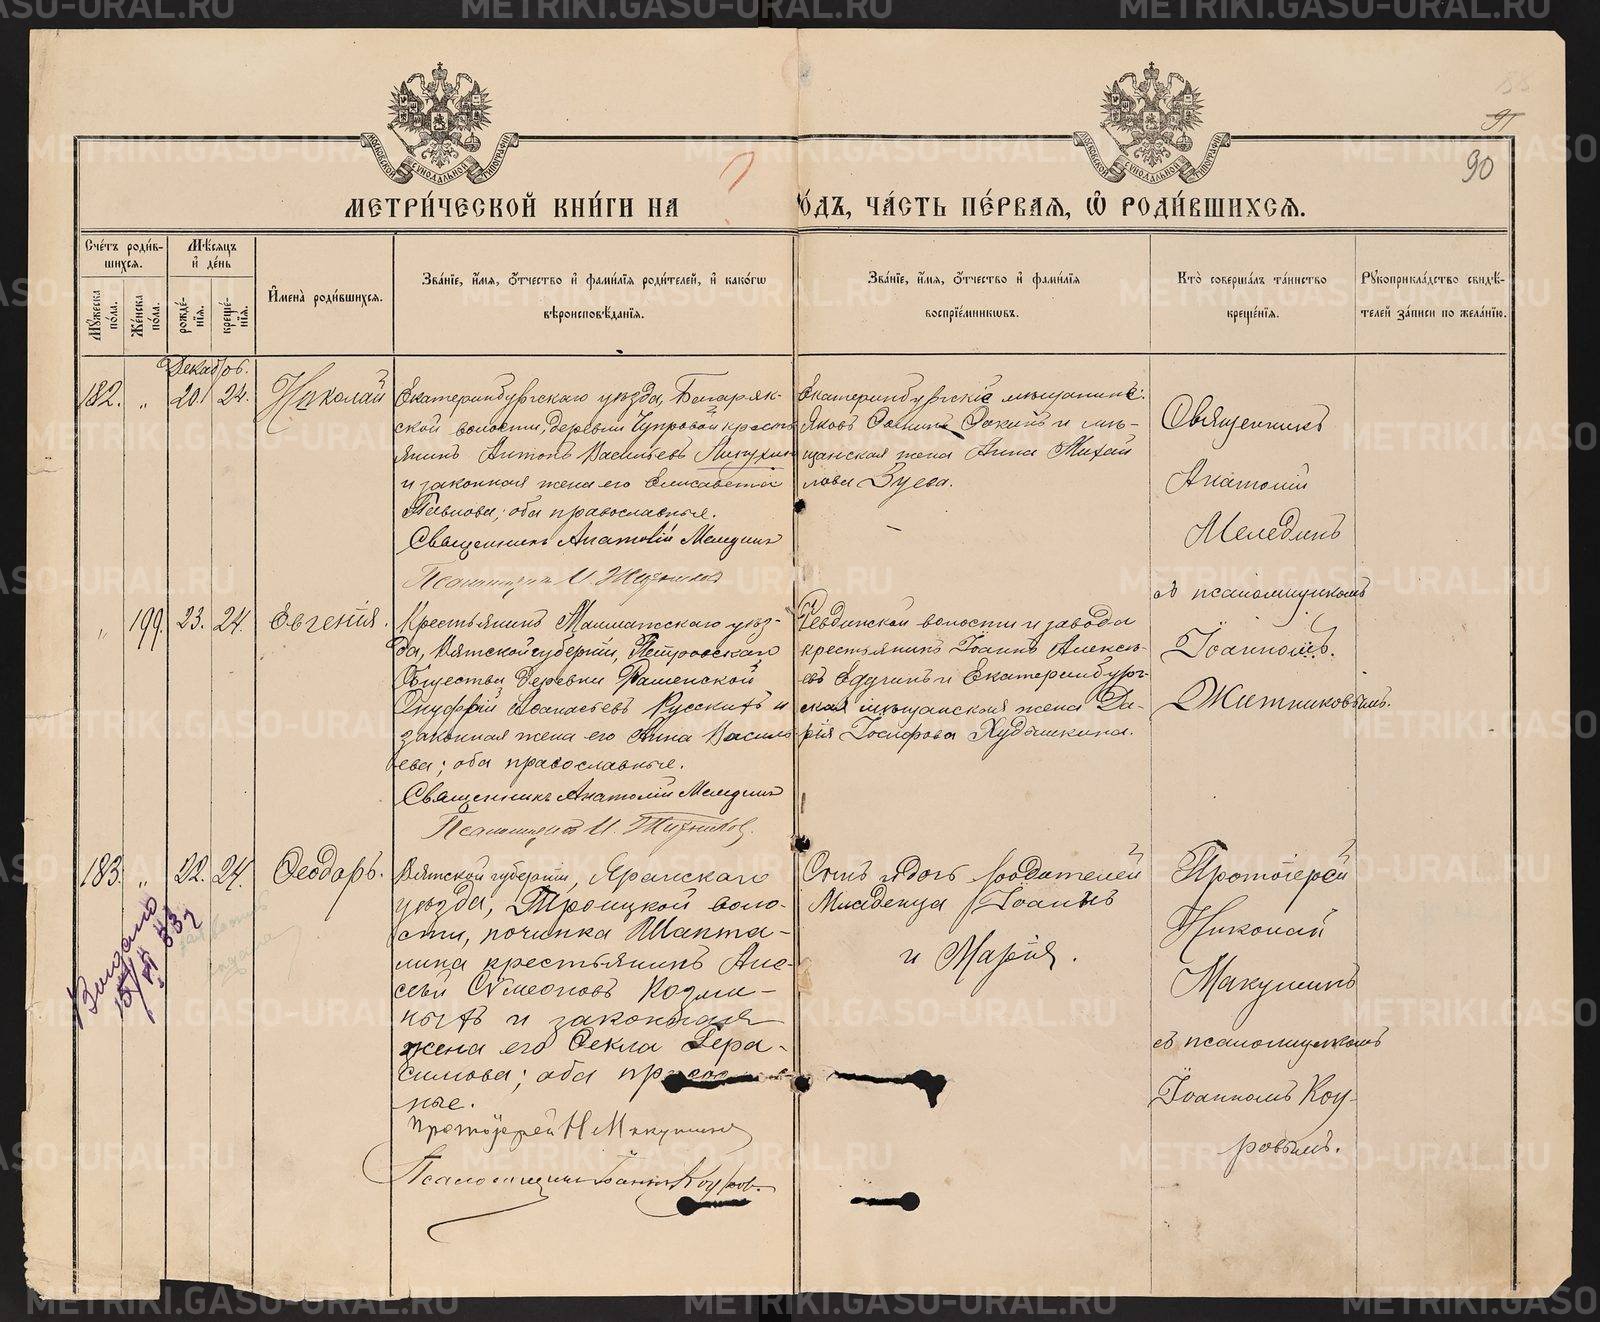 МЕТРИ́ЧЕСКОЙ КНИ́ГИ НА
О́ДЪ, ЧА́СТЬ ПЕ́РВАЯ, Ѡ РОДИ́ВШИХСЯ.
90
Сче́тъ роди́в-
шихся.
Мꙋ́жеска по́ла.
Же́нска по́ла.
Мѣ́сяцъ
и҆ де́нь
рожде́-
нїя.
креще́-
нїя.
И҆мена̀ роди́вшихся.
Зва́нїе, и҆́мя, ѻ҆́тчество и҆ фами́лїя роди́телей, и҆ како́гѡ
вѣроисповѣ́данїя.
Зва́нїе, и҆́мя, ѻ҆́тчество и҆ фами́лїя
воспрїе́мникѡвъ.
Кто̀ соверша́лъ та́инство
креще́нїя.
Рꙋкоприкла́дство свидѣ́-
телей за́писи по жела́нїю.
Декабрь.
182. „ 20. 24. Николай
Екатеринбургскаго уѣзда, Багаряк-
ской волости, деревни Чупровой кресть
янинъ Антонъ Васильевъ
и законная жена его Елисавета
Павлова; оба православные.
Священникъ Анатолій Меледин
Псаломщикъ И. Житников
Екатеринбургскіе мѣщанинъ:
Яковъ и мѣ-
щанская жена Анна Михай
лова Зуева.
Священникъ
Анатолій
Меледин
съ псаломщикомъ
Іоанномъ
Житниковымъ.
„ 199. 23. 24. Евгенія.
Крестьянинъ Малмыжскаго уѣз-
да, Вятской губерніи, Петровскаго
Общества деревни
Онуфрій Аѳанасьевъ Русскихъ и
законная жена его Анна Василь
ева; оба православные.
Священникъ Анатолій Меледин
Псаломщикъ И. Житников.
Ревдинской волости и завода
крестьянинъ Іоаннъ Алексѣ-
евъ и Екатеринбург-
ская мѣщанская жена Да-
рія Іосифова Худышкина.
183. „ 22. 24. Ѳеодоръ.
Вятской губерніи, Яранскаго
уѣзда, Троицкой воло-
сти, починка Шапта-
лина крестьянинъ Але-
ксѣй Сѵмеоновъ Козми-
ныхъ и законная
жена его Ѳекла Гера-
симова; оба
ные.
Протоіерей Н Макушинъ
Псаломщикъ Іоаннъ Коуров.
Сынъ и дочь родителей
Младенца Іоаннъ
и Марія.
Протоіерей
Николай
Макушинъ
съ псаломщикомъ
Іоанномъ Коу-
ровымъ.
METRIKI.GASO-URAL.RU